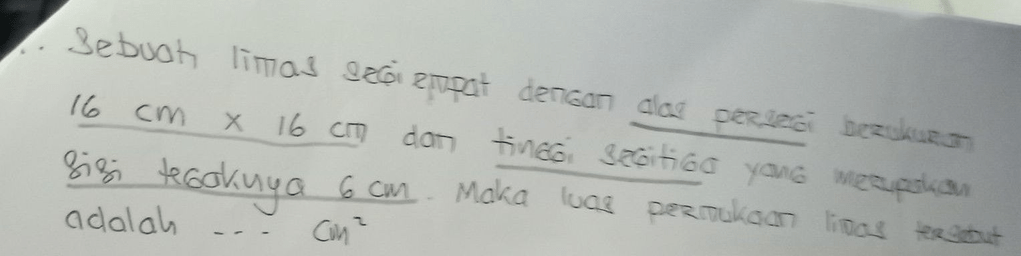 .. Sebuah limas segi empat dengan alas persegi berukuran
16 cm x 16 cm dan tinggi segitiga yang merupakan
sisi tegaknya 6 cm. Maka luas permukaan limas tersebut
adalah --- cm²